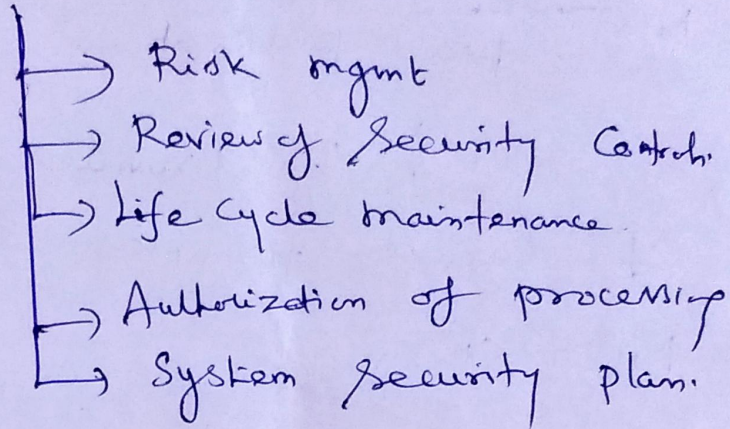 Risk mgmt
Review of Security Controls.
Life Cycle maintenance
Authorization of processing
System Security plan.